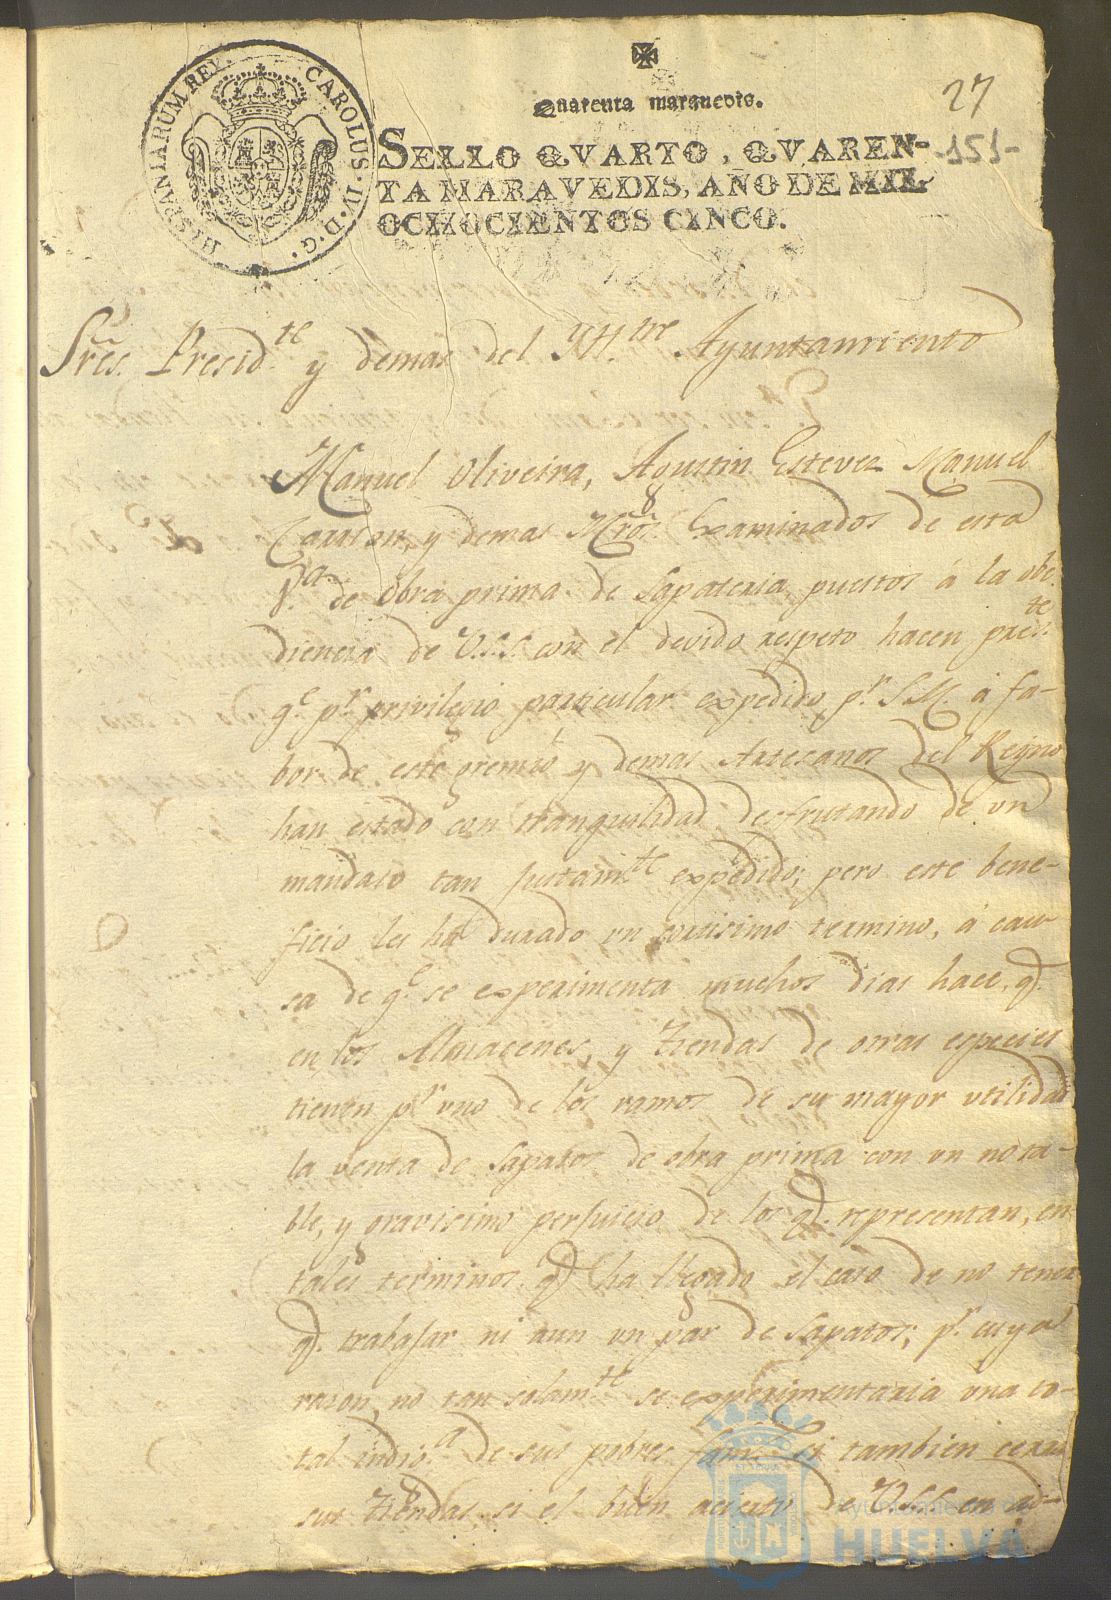 HISPANIARUM REY. CAROLUS. IV. D. G.
Quarenta marauedis.
27
SELLO QVARTO, QVAREN-
TA MARAVEDIS, AÑO DE MIL
OCHOCIENTOS CINCO.
-151-
Sres. Presid.te y demas del Yll.tre Ayuntamiento
Manuel Oliveira, Agustin Estevez Manuel
y demas Mros. Examinados de esta
V.a de Obra prima de Sapateria, puestos á la obe-
diencia de V.S.S. con el devido respeto hacen pres.te
q.e p.r privilegio particular expedido p.r S.M. á fa-
bor de este gremio y demas Artesanos del Reyno
han estado con tranquilidad desfrutando de un
mandato tan justam.te expedido; pero este bene-
ficio les ha durado un cortisimo termino, á cau-
sa de q.e se experimenta muchos dias hace, q.e
en los Almacenes, y Tiendas de otras especies
tienen p.r uno de los ramos de su mayor utilidad
la venta de Sapatos de obra prima con un nota-
ble, y gravisimo perjuicio de los q.e representan, en
tales terminos q.e ha llegado el caso de no tener
q.e trabajar ni aun un par de Sapatos; p.r cuya
razon, no tan solam.te se experimentaria una to-
tal indig.a de sus pobres fam.s si tambien cerrar
sus Tiendas, si el buen acierto de V.S.S. en no-
Ayuntamiento de
HUELVA